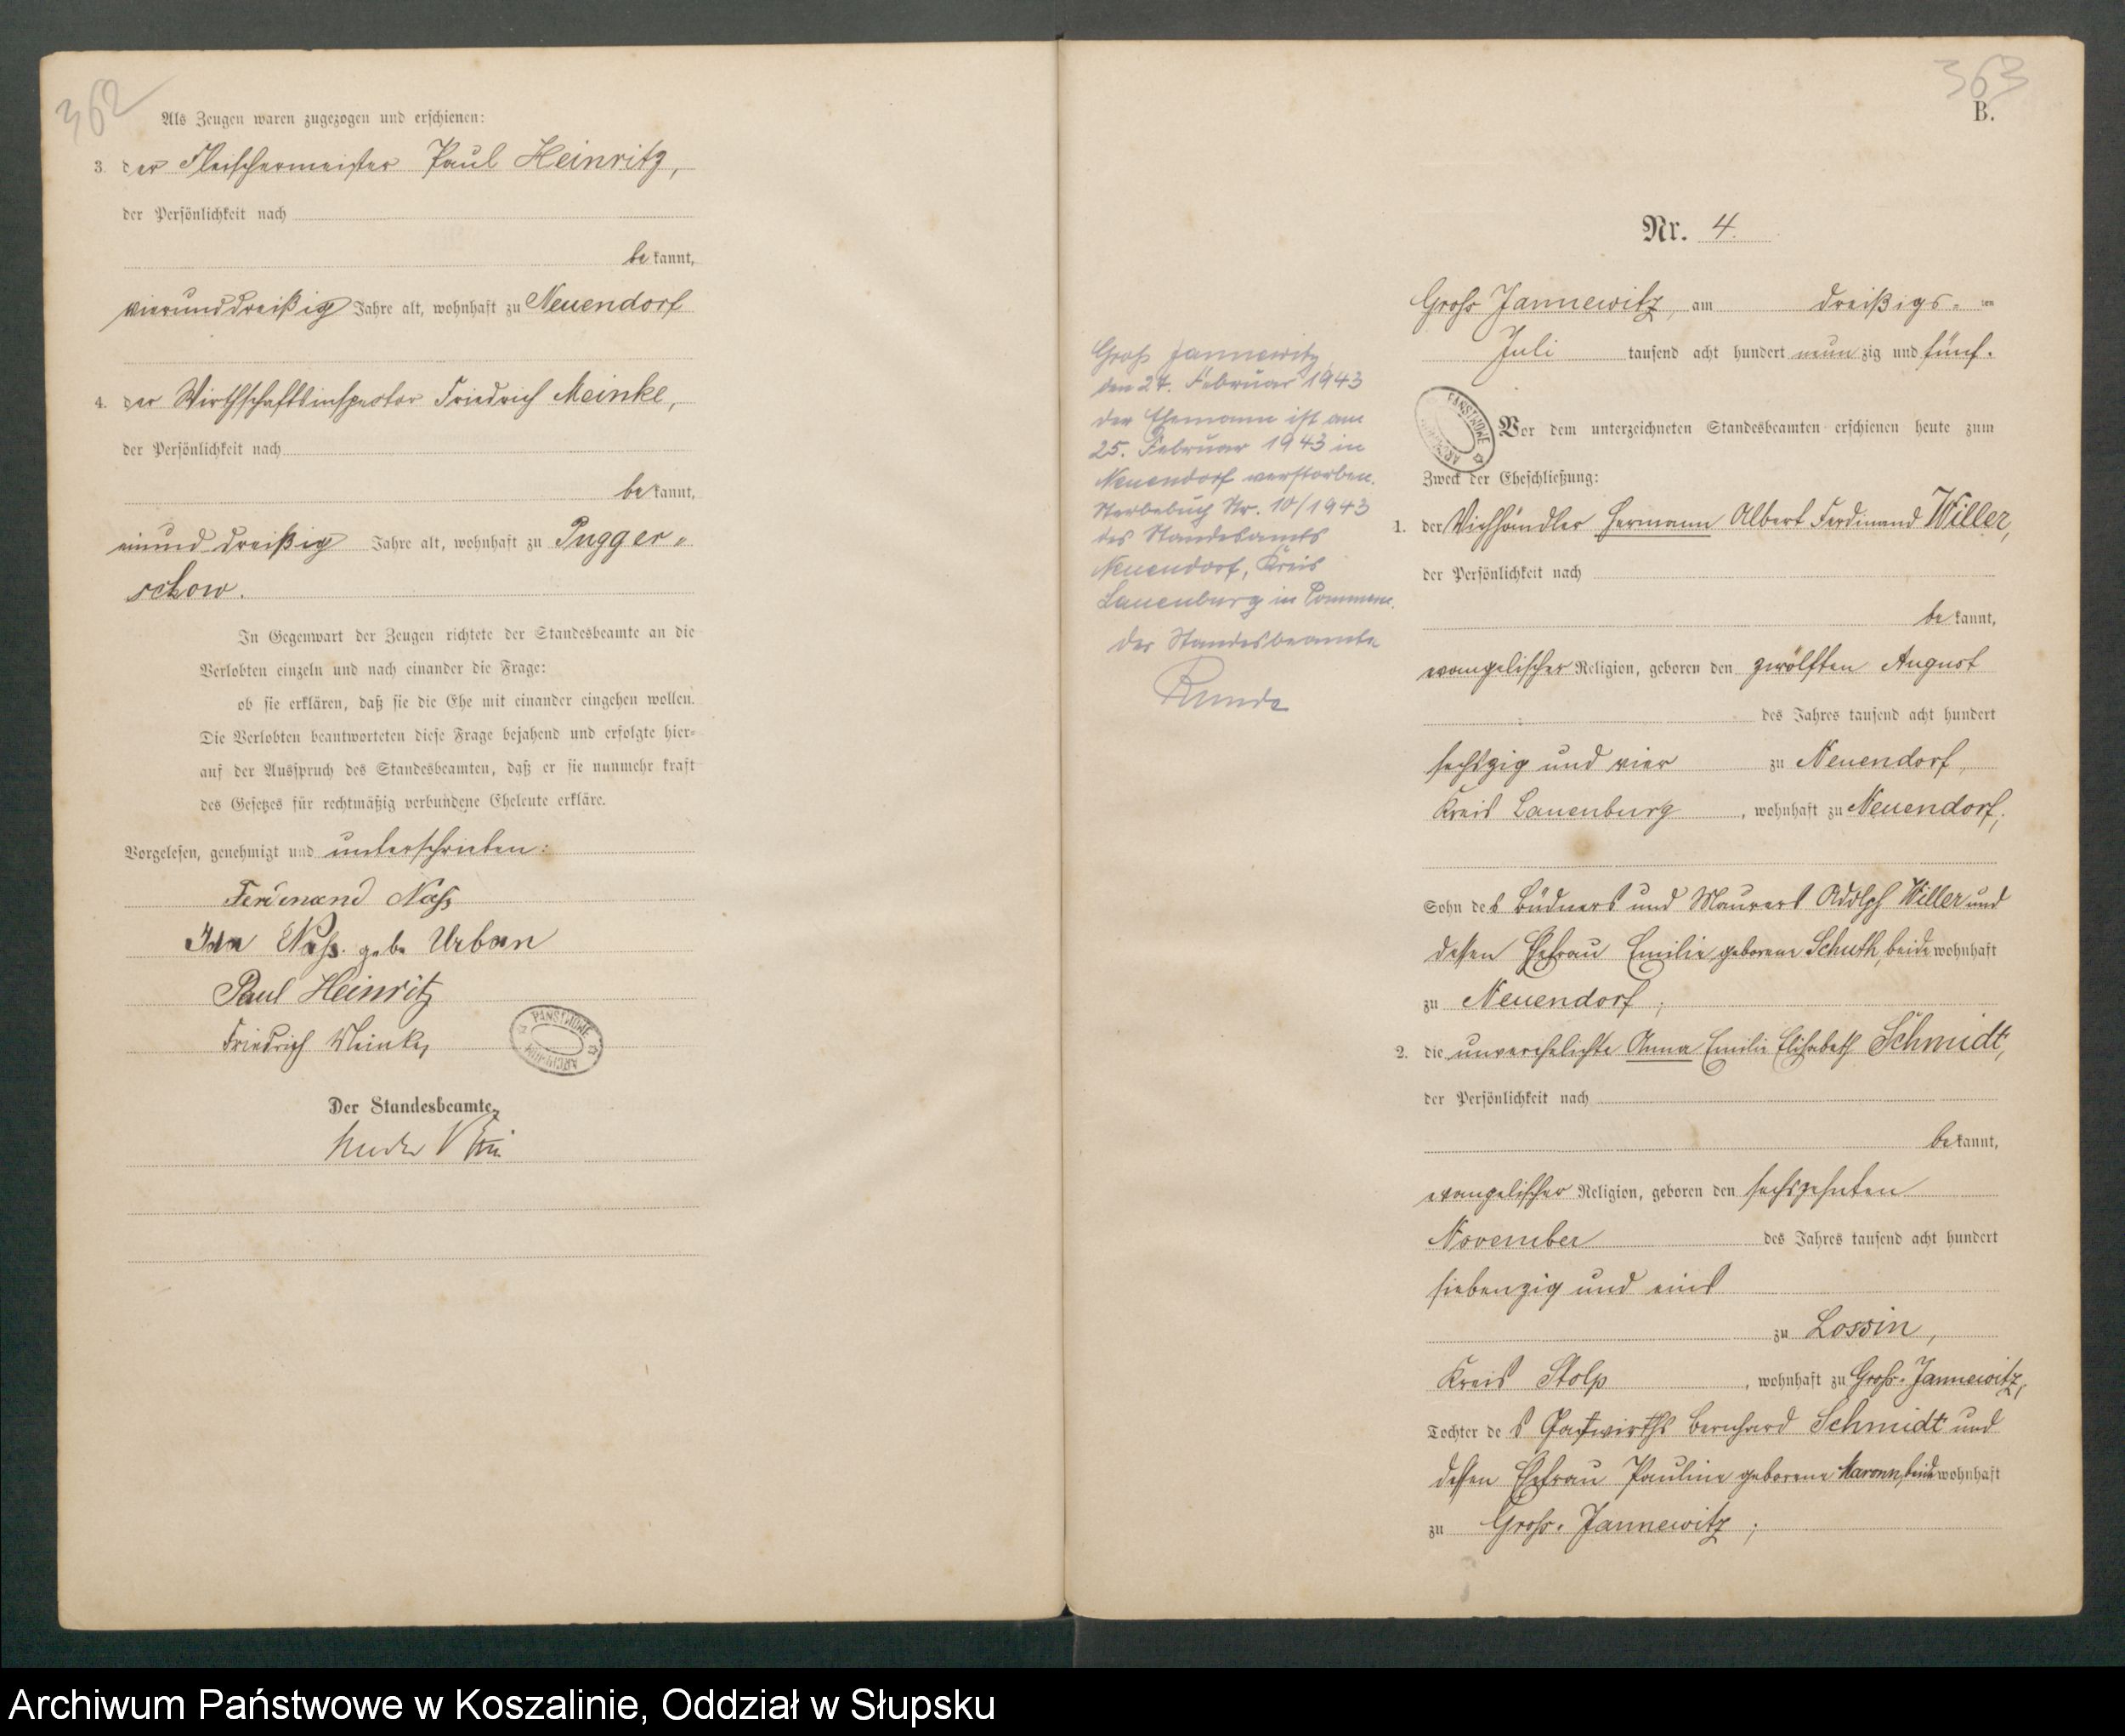 362
Als Zeugen waren zugezogen und erschienen:
3. der Fleischermeister Paul Heinritz,
der Persönlichkeit nach
bekannt,
vierunddreißig Jahre alt, wohnhaft zu Neuendorf
4. der Wirthschaftsinspector Friedrich Meinke,
der Persönlichkeit nach
bekannt,
einund dreißig Jahre alt, wohnhaft zu Pugger-
schow.
In Gegenwart der Zeugen richtete der Standesbeamte an die
Verlobten einzeln und nach einander die Frage:
ob sie erklären, daß sie die Ehe mit einander eingehen wollen.
Die Verlobten beantworteten diese Frage bejahend und erfolgte hier-
auf der Ausspruch des Standesbeamten, daß er sie nunmehr kraft
des Gesetzes für rechtmäßig verbundene Eheleute erkläre.
Vorgelesen, genehmigt und unterschrieben:
Ferdinand Nass
Ida Nass geb. Urban
Paul Heinritz
Friedrich Meinke,
PAŃSTWOWE ARCHIWUM
Der Standesbeamte.
363
B.
Nr. 4.
Gross Jannewitz, am dreißigs-ten
Juli tausend acht hundert neunzig und fünf.
PAŃSTWOWE ARCHIWUM
Vor dem unterzeichneten Standesbeamten erschienen heute zum
Zweck der Eheschließung:
1. der Viehhändler Hermann Albert Ferdinand Willer,
der Persönlichkeit nach
bekannt,
evangelischer Religion, geboren den zwölften August
des Jahres tausend acht hundert
sechszig und vier zu Neuendorf,
Kreis Lauenburg, wohnhaft zu Neuendorf,
Sohn des Büdners und Maurers Adolph Willer und
dessen Ehefrau Emilie geborene Schuth, beide wohnhaft
zu Neuendorf;
2. die unverehelichte Anna Emilie Elisabeth Schmidt,
der Persönlichkeit nach
bekannt,
evangelischer Religion, geboren den sechszehnten
November des Jahres tausend acht hundert
siebenzig und eins
zu Lossin,
Kreis Stolp, wohnhaft zu Gross-Jannewitz,
Tochter des Gastwirths Bernhard Schmidt und
dessen Ehefrau Pauline geborene Maronn, beide wohnhaft
zu Gross-Jannewitz;
Groß Jannewitz,
den 27. Februar 1943
der Ehemann ist am
25. Februar 1943 in
Neuendorf verstorben.
Sterbebuch Nr. 10/1943
des Standesamts
Neuendorf, Kreis
Lauenburg in Pommern.
Der Standesbeamte
Archiwum Państwowe w Koszalinie, Oddział w Słupsku